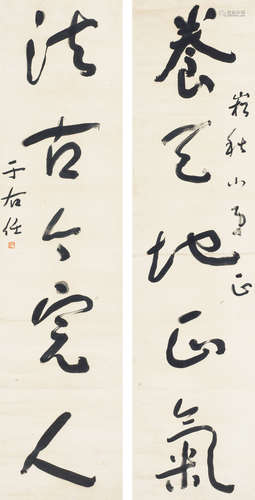 養天地正氣
秋山
正
法古今完人
于右任